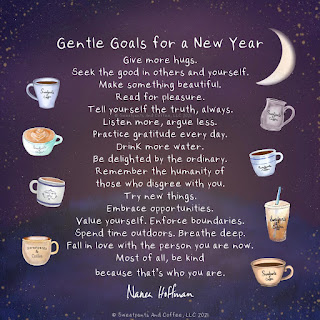 Gentle Goals for a New Year
Give more hugs.
Seek the good in others and yourself.
Make something beautiful.
Read for pleasure.
Tell yourself the truth, always.
Listen more, argue less.
Practice gratitude every day.
Drink more water.
Be delighted by the ordinary.
Remember the humanity of
those who disagree with you.
Try new things.
Embrace opportunities.
Value yourself. Enforce boundaries.
Spend time outdoors. Breathe deep.
Fall in love with the person you are now.
Most of all, be kind
because that's who you are.
Nanea Hoffman
© Sweatpants And Coffee, LLC 2021